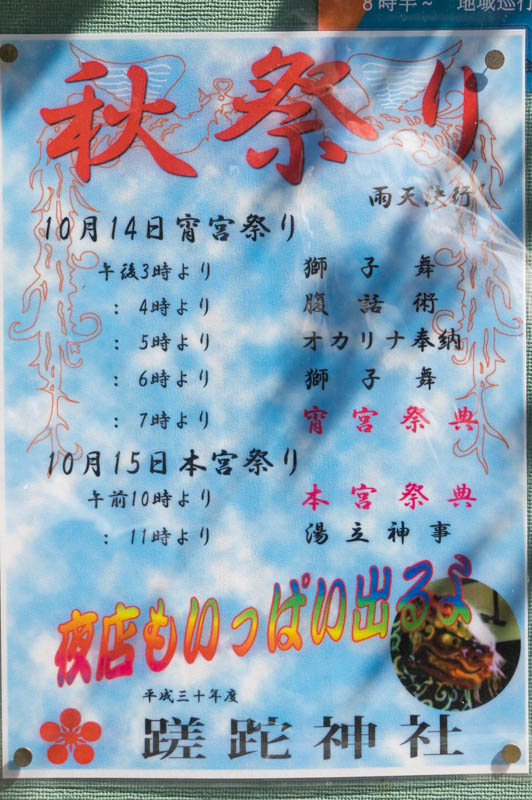 8時半~ 地域巡行
秋祭り
雨天決行
10月14日宵宮祭り
午後3時より 獅子舞
: 4時より 腹話術
: 5時より オカリナ奉納
: 6時より 獅子舞
: 7時より 宵宮祭典
10月15日本宮祭り
午前10時より 本宮祭典
: 11時より 湯立神事
夜店もいっぱい出るよ
平成三十年度
蹉跎神社